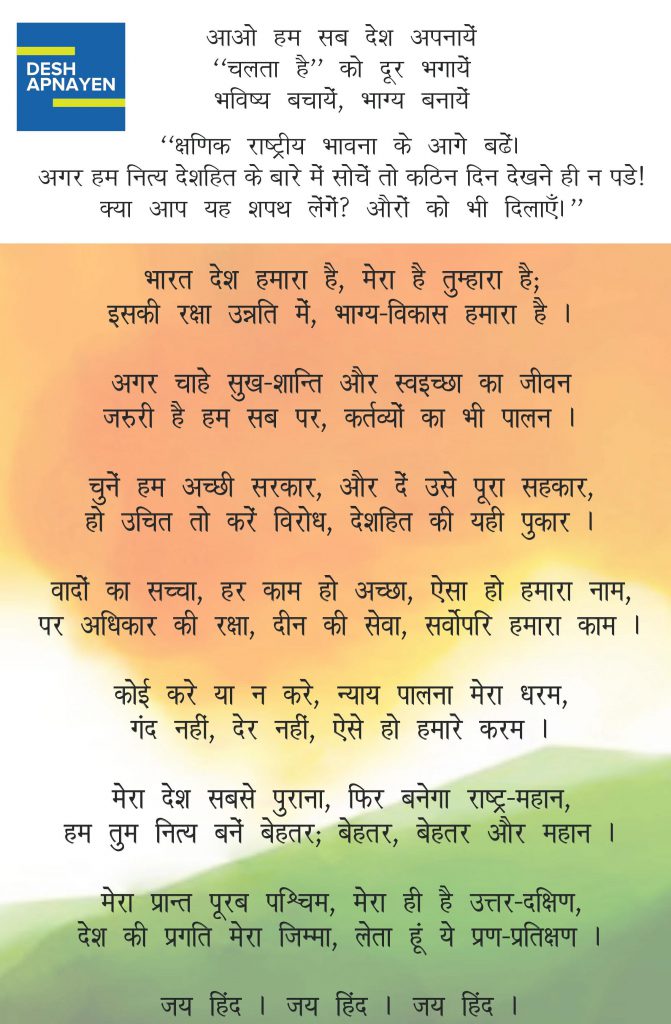 DESH
APNAYEN
आओ हम सब देश अपनायें
“चलता है” को दूर भगायें
भविष्य बचायें, भाग्य बनायें
“क्षणिक राष्ट्रीय भावना के आगे बढें।
अगर हम नित्य देशहित के बारे में सोचें तो कठिन दिन देखने ही न पडे!
क्या आप यह शपथ लेंगें? औरों को भी दिलाएँ।”
भारत देश हमारा है, मेरा है तुम्हारा है;
इसकी रक्षा उन्नति में, भाग्य-विकास हमारा है ।
अगर चाहे सुख-शान्ति और स्वइच्छा का जीवन
जरुरी है हम सब पर, कर्तव्यों का भी पालन ।
चुनें हम अच्छी सरकार, और दें उसे पूरा सहकार,
हो उचित तो करें विरोध, देशहित की यही पुकार ।
वादों का सच्चा, हर काम हो अच्छा, ऐसा हो हमारा नाम,
पर अधिकार की रक्षा, दीन की सेवा, सर्वोपरि हमारा काम ।
कोई करे या न करे, न्याय पालना मेरा धरम,
गंद नहीं, देर नहीं, ऐसे हो हमारे करम ।
मेरा देश सबसे पुराना, फिर बनेगा राष्ट्र-महान,
हम तुम नित्य बनें बेहतर; बेहतर, बेहतर और महान ।
मेरा प्रान्त पूरब पश्चिम, मेरा ही है उत्तर-दक्षिण,
देश की प्रगति मेरा जिम्मा, लेता हूं ये प्रण-प्रतिक्षण ।
जय हिंद । जय हिंद । जय हिंद ।